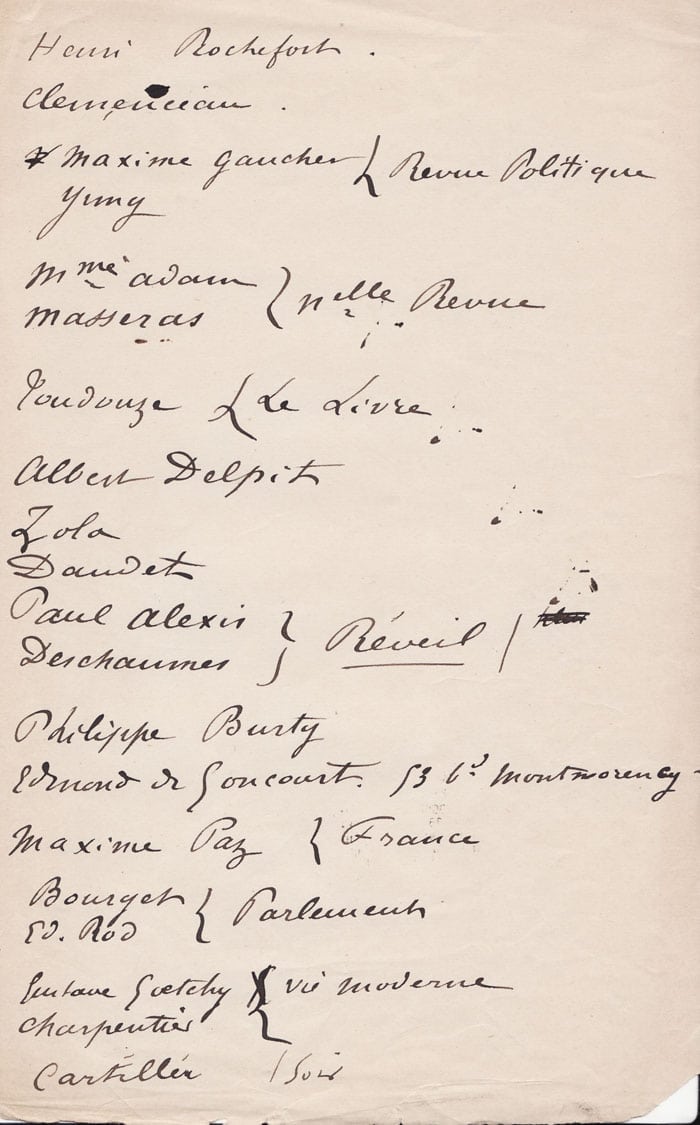 Henri Rochefort.
Clemenceau.
Maxime Gaucher { Revue Politique
Yung
Mme Adam } Nelle Revue
Masseras
Toudouze { Le Livre
Albert Delpit
Zola
Daudet
Paul Alexis } Réveil /
Deschaumes
Philippe Burty
Edmond de Goncourt. 53 Bd Montmorency
Maxime Paz { France
Bourget { Parlement
Ed. Rod
Gustave Goetchy { vie moderne
Charpentier
Cartillier / Soir